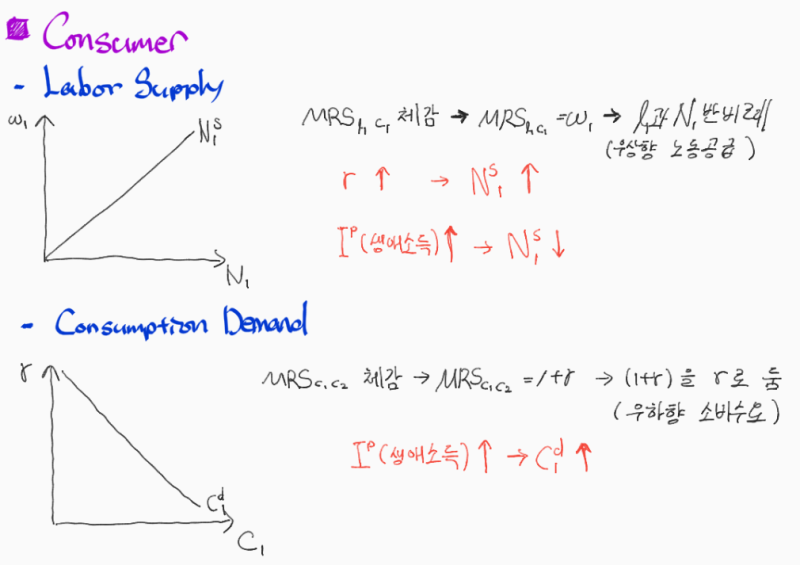 Consumer
- Labor Supply
w₁
N₁ˢ
N₁
MRS_h,c₁ 체감 → MRS_h,c₁ = w₁ → l₁과 N₁ 반비례
(우상향 노동공급)
r ↑ → N₁ˢ ↑
Iᴾ(생애소득)↑ → N₁ˢ ↓
- Consumption Demand
r
C₁ᵈ
C₁
MRS_c₁,c₂ 체감 → MRS_c₁,c₂ = 1+r → (1+r)을 r로 둠
(우하향 소비수요)
Iᴾ(생애소득)↑ → C₁ᵈ ↑